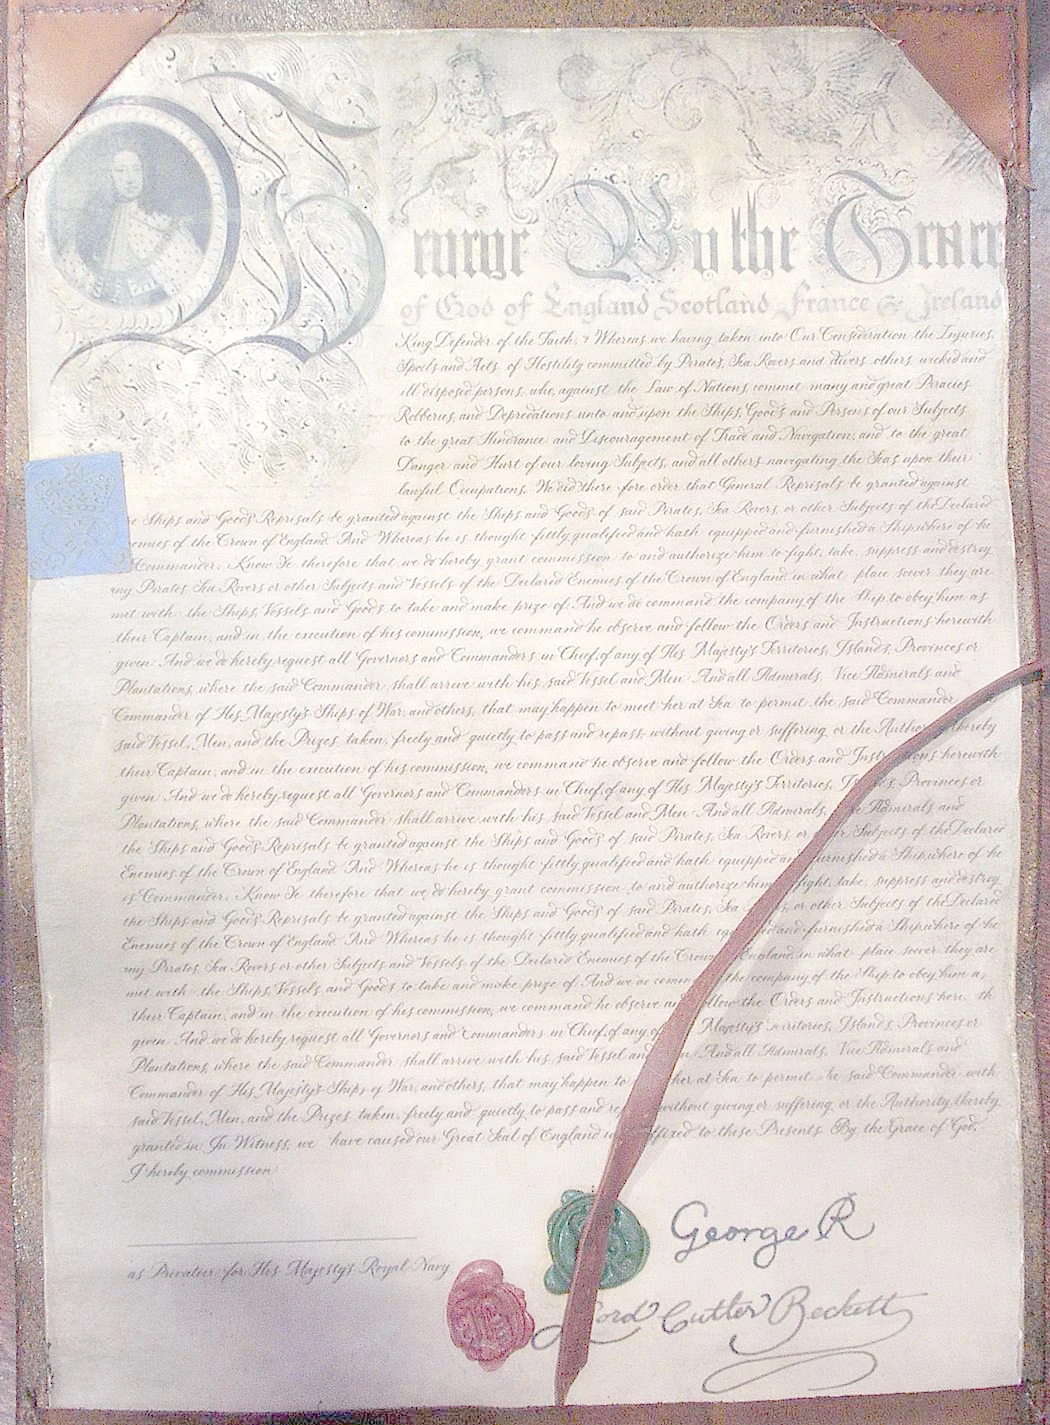 George By the Grace
of God of England Scotland France & Ireland
King Defender of the Faith, & Whereas we having taken into Our Consideration the Injuries,
Spoils and Acts of Hostility committed by Pirates, Sea Rovers and divers others, wicked and
ill disposed persons, who, against the Law of Nations, commit many and great Piracies
Robberies, and Depredations unto and upon the Ships, Goods and Persons of our Subjects
to the great Hindrance and Discouragement of Trade and Navigation, and to the great
Danger and Hurt of our loving Subjects, and all others navigating the Seas upon their
lawful Occupations, We did there fore order that General Reprisals be granted against
he Ships and Goods Reprisals be granted against the Ships and Goods of said Pirates, Sea Rovers, or other Subjects of the Declared
nemies of the Crown of England And Whereas he is thought fittly qualified and hath equipped and furnished a Ship where of he
Commander. Know Ye therefore that we do hereby grant commission to and authorize him to fight, take, suppress and destroy
my Pirates, Sea Rovers or other Subjects and Vessels of the Declared Enemies of the Crown of England in what place soever they are
met with the Ships, Vessels and Goods to take and make prize of. And we do command the company of the Ship to obey him as
their Captain, and in the execution of his commission, we command he observe and follow the Orders and Instructions herewith
given. And we do hereby request all Governors and Commanders in Chief, of any of His Majesty's Territories, Islands, Provinces or
Plantations, where the said Commander shall arrive with his said Vessel and Men. And all Admirals, Vice Admirals and
Commander of His Majesty's Ships of War, and others, that may happen to meet her at Sea to permit the said Commander
said Vessel, Men, and the Prizes taken, freely and quietly to pass and repass, without giving or suffering or the Author hereby
their Captain, and in the execution of his commission, we command he observe and follow the Orders and Inst ions herewith
given And we do hereby request all Governors and Commanders in Chief, of any of His Majesty's Territories, I s, Provinces or
Plantations, where the said Commander shall arrive with his said Vessel and Men. And all Admirals, Admirals and
the Ships and Goods Reprisals be granted against the Ships and Goods of said Pirates, Sea Rovers, or r. Subjects of the Declared
Enemies of the Crown of England And Whereas he is thought fittly qualified and hath equipped an furnished a Ship where of he
is Commander. Know Ye therefore that we do hereby grant commission to and authorize him fight, take, suppress and destroy
the Ships and Goods Reprisals be granted against the Ships and Goods of said Pirates, Sea or other Subjects of the Declared
Enemies of the Crown of England And Whereas he is thought fittly qualified and hath eq ed and furnished a Ship where of he
my Pirates, Sea Rovers or other Subjects and Vessels of the Declared Enemies of the Crow England in what place soever they are
met with the Ships, Vessels and Goods to take and make prize of. And we do comm the company of the Ship to obey him a,
their Captain, and in the execution of his commission, we command he observe an llow the Orders and Instructions here th
given And we do hereby request all Governors and Commanders in Chief, of any of Majesty's Territories, Islands, Provinces or
Plantations, where the said Commander shall arrive with his said Vessel an n. And all Admirals, Vice Admirals and
Commander of His Majesty's Ships of War, and others, that may happen to her at Sea to permit he said Commander with
said Vessel, Men, and the Prizes taken, freely and quietly to pass and re without giving or suffering or the Authority thereby
granted in In Witness, we have caused our Great Seal of England affixed to these Presents By the Grace of God,
I hereby commission
as Privateer for His Majesty's Royal Navy
George R
Lord Cutler Beckett